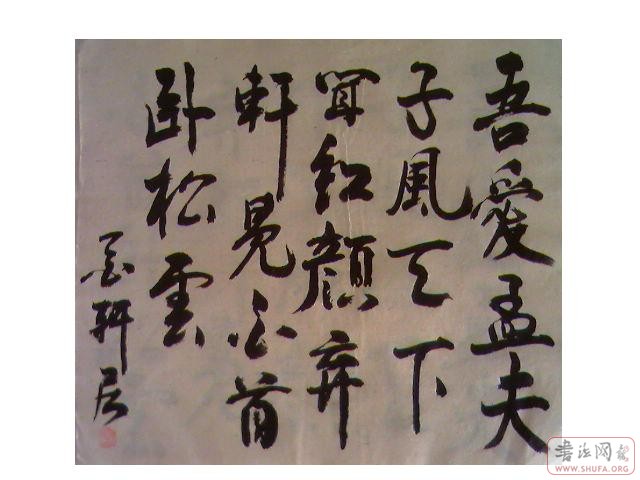 吾愛孟夫
子風天下
聞紅顔弃
軒冕白首
卧松雲
墨軒居
書法网
WWW.SHUFA.ORG